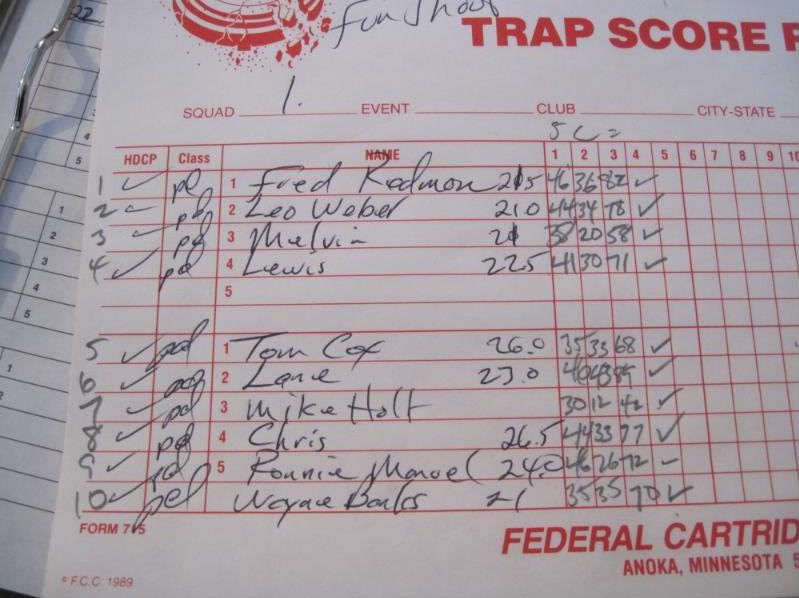 22
Fun Shoot
TRAP SCORE
SQUAD 1. EVENT CLUB CITY-STATE
HDCP Class NAME 1 2 3 4 5 6 7 8 9 10
1 ✓ pd 1 Fred Redmon 21.5 46 36 82 ✓
2 ✓ pd 2 Leo Weber 21.0 44 34 78 ✓
3 ✓ pd 3 Melvin 21 38 20 58 ✓
4 ✓ pd 4 Lewis 22.5 41 30 71 ✓
5
5 ✓ pd 1 Tom Cox 26.0 35 33 68 ✓
6 ✓ pd 2 Lane 23.0 ✓
7 ✓ pd 3 Mike Holt 30 12 42 ✓
8 ✓ pd 4 Chris 26.5 44 33 77 ✓
9 ✓ pd 5 Ronnie Manuel 24.0 46 26 72 ✓
10 ✓ pd Wayne Banks 21 35 35 70 ✓
FORM 715
FEDERAL CARTRID
ANOKA, MINNESOTA 5
© F.C.C. 1989